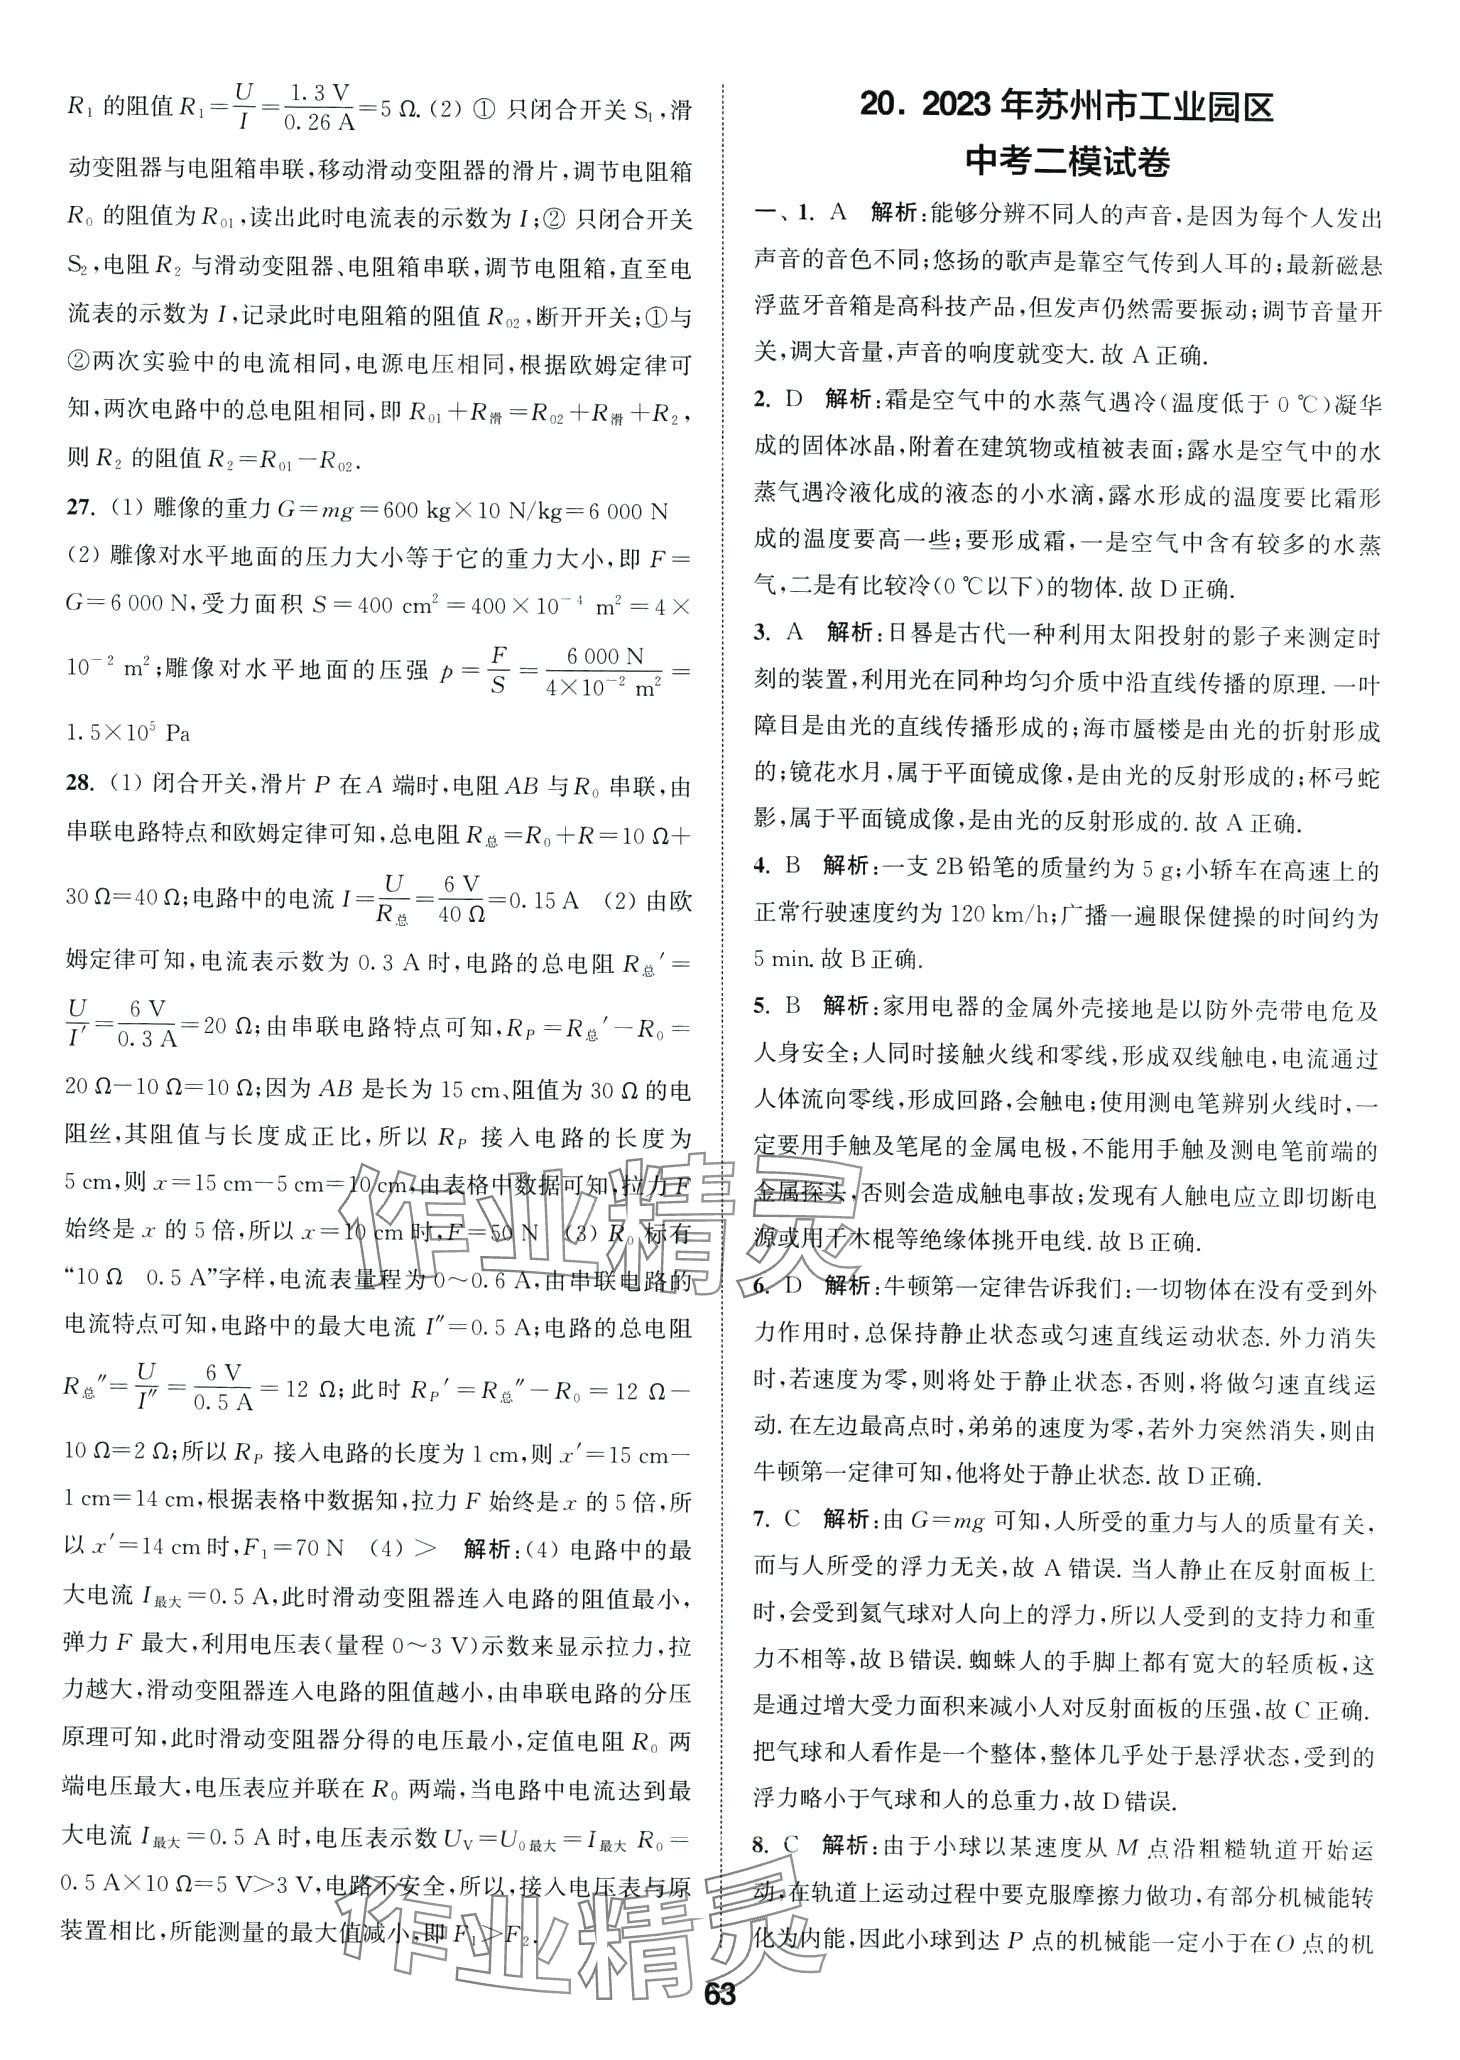 R₁ 的阻值 R₁=U/I=1.3 V/0.26 A=5 Ω.(2) ① 只闭合开关 S₁,滑
动变阻器与电阻箱串联,移动滑动变阻器的滑片,调节电阻箱
R₀ 的阻值为 R₀₁,读出此时电流表的示数为 I;② 只闭合开关
S₂,电阻 R₂ 与滑动变阻器、电阻箱串联,调节电阻箱,直至电
流表的示数为 I,记录此时电阻箱的阻值 R₀₂,断开开关;①与
②两次实验中的电流相同,电源电压相同,根据欧姆定律可
知,两次电路中的总电阻相同,即 R₀₁+R滑=R₀₂+R滑+R₂,
则 R₂ 的阻值 R₂=R₀₁-R₀₂.
27. (1) 雕像的重力 G=mg=600 kg×10 N/kg=6 000 N
(2) 雕像对水平地面的压力大小等于它的重力大小,即 F=
G=6 000 N,受力面积 S=400 cm²=400×10⁻⁴ m²=4×
10⁻² m²;雕像对水平地面的压强 p=F/S=6 000 N/4×10⁻² m²=
1.5×10⁵ Pa
28. (1) 闭合开关,滑片 P 在 A 端时,电阻 AB 与 R₀ 串联,由
串联电路特点和欧姆定律可知,总电阻 R总=R₀+R=10 Ω+
30 Ω=40 Ω;电路中的电流 I=U/R总=6 V/40 Ω=0.15 A (2) 由欧
姆定律可知,电流表示数为 0.3 A 时,电路的总电阻 R总′=
U/I′=6 V/0.3 A=20 Ω;由串联电路特点可知,R_P=R总′-R₀=
20 Ω-10 Ω=10 Ω;因为 AB 是长为 15 cm、阻值为 30 Ω 的电
阻丝,其阻值与长度成正比,所以 R_P 接入电路的长度为
5 cm,则 x=15 cm-5 cm=10 cm,由表格中数据可知,拉力 F
始终是 x 的 5 倍,所以 x=10 cm 时,F=50 N (3) R₀ 标有
“10 Ω 0.5 A”字样,电流表量程为 0~0.6 A,由串联电路的
电流特点可知,电路中的最大电流 I″=0.5 A;电路的总电阻
R总″=U/I″=6 V/0.5 A=12 Ω;此时 R_P′=R总″-R₀=12 Ω-
10 Ω=2 Ω;所以 R_P 接入电路的长度为 1 cm,则 x′=15 cm-
1 cm=14 cm,根据表格中数据知,拉力 F 始终是 x 的 5 倍,所
以 x′=14 cm 时,F₁=70 N (4) > 解析:(4) 电路中的最
大电流 I最大=0.5 A,此时滑动变阻器连入电路的阻值最小,
弹力 F 最大,利用电压表(量程 0~3 V)示数来显示拉力,拉
力越大,滑动变阻器连入电路的阻值越小,由串联电路的分压
原理可知,此时滑动变阻器分得的电压最小,定值电阻 R₀ 两
端电压最大,电压表应并联在 R₀ 两端,当电路中电流达到最
大电流 I最大=0.5 A 时,电压表示数 U_V=U₀最大=I最大 R₀=
0.5 A×10 Ω=5 V>3 V,电路不安全,所以,接入电压表与原
装置相比,所能测量的最大值减小,即 F₁>F₂.
20. 2023 年苏州市工业园区
中考二模试卷
一、1. A 解析:能够分辨不同人的声音,是因为每个人发出
声音的音色不同;悠扬的歌声是靠空气传到人耳的;最新磁悬
浮蓝牙音箱是高科技产品,但发声仍然需要振动;调节音量开
关,调大音量,声音的响度就变大.故 A 正确.
2. D 解析:霜是空气中的水蒸气遇冷(温度低于 0 ℃)凝华
成的固体冰晶,附着在建筑物或植被表面;露水是空气中的水
蒸气遇冷液化成的液态的小水滴,露水形成的温度要比霜形
成的温度要高一些;要形成霜,一是空气中含有较多的水蒸
气,二是有比较冷(0 ℃以下)的物体.故 D 正确.
3. A 解析:日晷是古代一种利用太阳投射的影子来测定时
刻的装置,利用光在同种均匀介质中沿直线传播的原理.一叶
障目是由光的直线传播形成的;海市蜃楼是由光的折射形成
的;镜花水月,属于平面镜成像,是由光的反射形成的;杯弓蛇
影,属于平面镜成像,是由光的反射形成的.故 A 正确.
4. B 解析:一支 2B 铅笔的质量约为 5 g;小轿车在高速上的
正常行驶速度约为 120 km/h;广播一遍眼保健操的时间约为
5 min.故 B 正确.
5. B 解析:家用电器的金属外壳接地是以防外壳带电危及
人身安全;人同时接触火线和零线,形成双线触电,电流通过
人体流向零线,形成回路,会触电;使用测电笔辨别火线时,一
定要用手触及笔尾的金属电极,不能用手触及测电笔前端的
金属探头,否则会造成触电事故;发现有人触电应立即切断电
源或用干木棍等绝缘体挑开电线.故 B 正确.
6. D 解析:牛顿第一定律告诉我们:一切物体在没有受到外
力作用时,总保持静止状态或匀速直线运动状态.外力消失
时,若速度为零,则将处于静止状态,否则,将做匀速直线运
动.在左边最高点时,弟弟的速度为零,若外力突然消失,则由
牛顿第一定律可知,他将处于静止状态.故 D 正确.
7. C 解析:由 G=mg 可知,人所受的重力与人的质量有关,
而与人所受的浮力无关,故 A 错误.当人静止在反射面板上
时,会受到氦气球对人向上的浮力,所以人受到的支持力和重
力不相等,故 B 错误.蜘蛛人的手脚上都有宽大的轻质板,这
是通过增大受力面积来减小人对反射面板的压强,故 C 正确.
把气球和人看作是一个整体,整体几乎处于悬浮状态,受到的
浮力略小于气球和人的总重力,故 D 错误.
8. C 解析:由于小球以某速度从 M 点沿粗糙轨道开始运
动,在轨道上运动过程中要克服摩擦力做功,有部分机械能转
化为内能,因此小球到达 P 点的机械能一定小于在 O 点的机
63
作业精灵
作业精灵